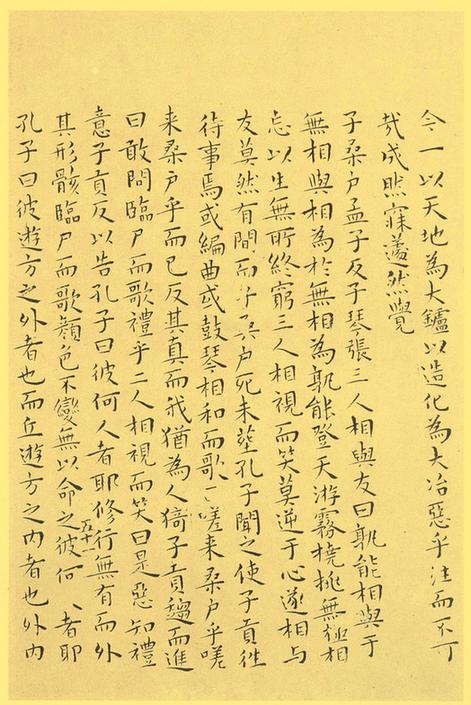 今一以天地為大鑪以造化為大冶惡乎往而不可
哉成然寐蘧然覺
子桑戶孟子反子琴張三人相與友曰孰能相與于
無相與相為於無相為孰能登天游霧撓挑無極相
忘以生無所終窮三人相視而笑莫逆于心遂相与
友莫然有間而子桑戶死未塟孔子聞之使子貢徃
待事焉或編曲或鼓琴相和而歌曰嗟来桑戶乎嗟
来桑戶乎而已反其真而我猶為人猗子貢趨而進
曰敢問臨尸而歌禮乎二人相視而笑曰是惡知禮
意子貢反以告孔子曰彼何人者耶修行無有而外
其形骸臨尸而歌顏色不變無以命之彼何人者耶
孔子曰彼遊方之外者也而丘遊方之内者也外内